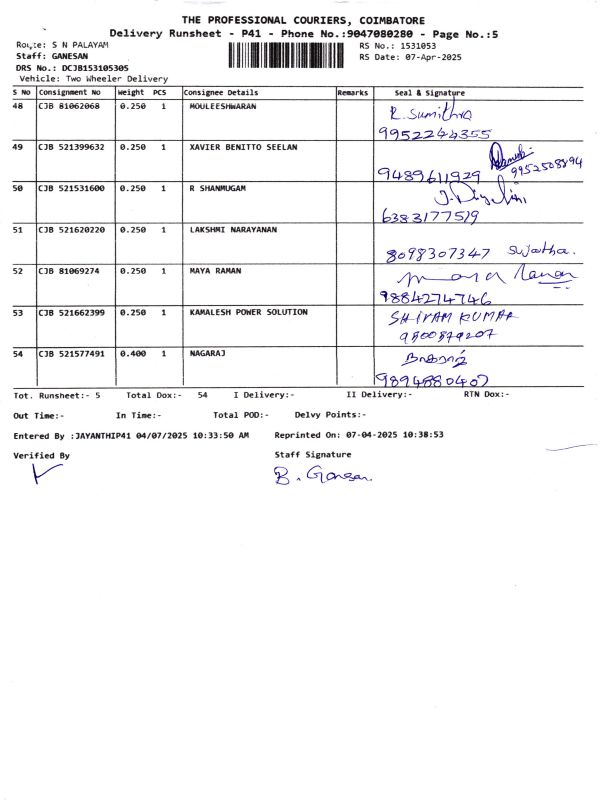 THE PROFESSIONAL COURIERS, COIMBATORE
Delivery Runsheet - P41 - Phone No.:9047080280 - Page No.:5
Route: S N PALAYAM RS No.: 1531053
Staff: GANESAN RS Date: 07-Apr-2025
DRS No.: DCJB153105305
Vehicle: Two Wheeler Delivery
S No Consignment No Weight PCS Consignee Details Remarks Seal & Signature
48 CJB 81062068 0.250 1 MOULEESHWARAN R. Sumithra
9952244355
49 CJB 521399632 0.250 1 XAVIER BENITTO SEELAN
9489611929 9952508894
50 CJB 521531600 0.250 1 R SHANMUGAM
6383177519
51 CJB 521620220 0.250 1 LAKSHMI NARAYANAN
8098307347 Sujatha.
52 CJB 81069274 0.250 1 MAYA RAMAN maya Raman
9884274746
53 CJB 521662399 0.250 1 KAMALESH POWER SOLUTION SHIVAM KUMAR
54 CJB 521577491 0.400 1 NAGARAJ நாகராஜ்
9894880407
Tot. Runsheet:- 5 Total Dox:- 54 I Delivery:- II Delivery:- RTN Dox:-
Out Time:- In Time:- Total POD:- Delvy Points:-
Entered By :JAYANTHIP41 04/07/2025 10:33:50 AM Reprinted On: 07-04-2025 10:38:53
Verified By Staff Signature
B. Ganesan.